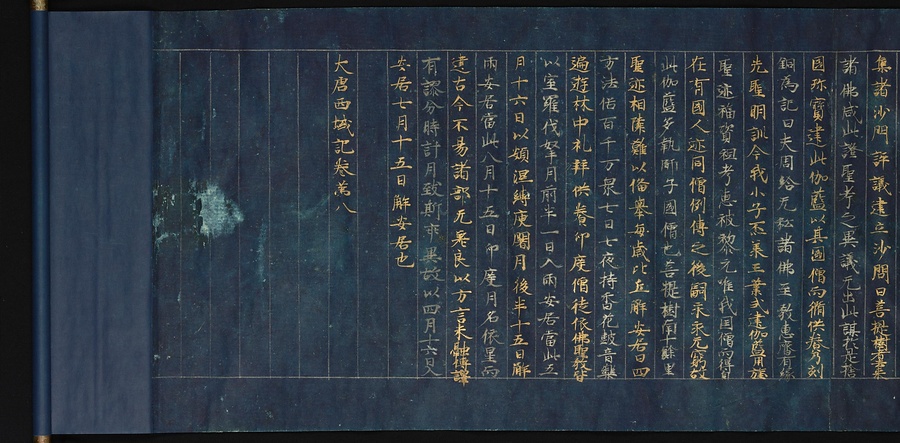 集諸沙門詳議建立沙門曰菩提樹者去來
諸佛咸此證聖考之異議无出此謀於是捨
國珍寶建此伽藍以其國僧而修供養乃刻
銅為記曰夫周給无私諸佛至教惠濟有緣
先聖明訓今我小子丕承王業式建伽藍用旌
聖迹福資祖考惠被黎元唯我國僧而得自
在及有國人亦同僧例傳之後嗣永永无窮故
此伽藍多執師子國僧也菩提樹南十餘里
聖迹相隣難以備舉每歲比丘解安居四
方法俗百千万眾七日七夜持香花鼓音樂
遍遊林中礼拜供養印度僧徒依佛聖教皆
以室羅伐拏月前半一日入雨安居當此五
月十六日以頞濕縛庾闍月後半十五日解
雨安居當此八月十五日印度月名依星而
建古今不易諸部无乖良以方言未融傳譯
有謬分時計月致斯乖異故以四月十六日入
安居七月十五日解安居也
大唐西域記卷第八